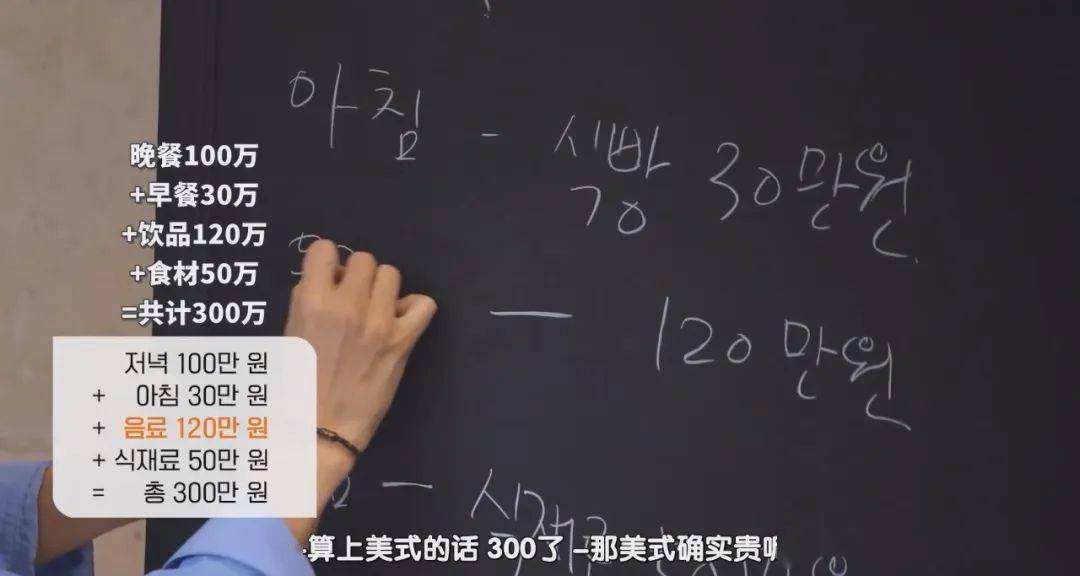 아침 - 식빵 30만원
— 120만원
— 식재료
晚餐100万
+早餐30万
+饮品120万
+食材50万
=共计300万
저녁 100만 원
+ 아침 30만 원
+ 음료 120만 원
+ 식재료 50만 원
= 총 300만 원
算上美式的话 300了 –那美式确实贵